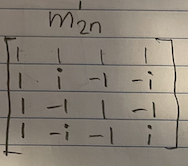 m'2n
1 1 1 1
1 i -1 -i
1 -1 1 -1
1 -i -1 i